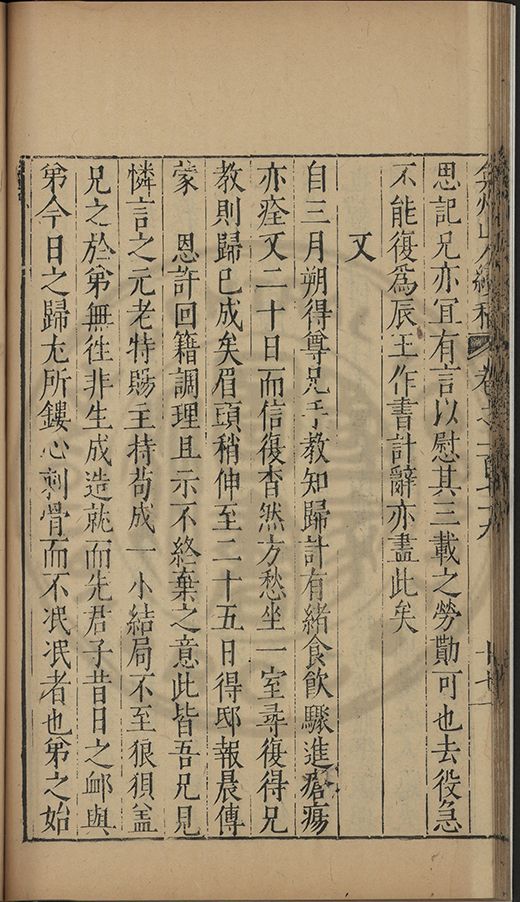 弇州山人續稿 卷之一百七十九 十七
思記兄亦宜有言以慰其三載之勞勩可也去役急
不能復為辰玉作書計辭亦盡此矣
又
自三月朔得尊兄手教知歸計有緒食飲驟進瘡瘍
亦痊又二十日而信復杳然方愁坐一室尋復得兄
教則歸已成矣眉頭稍伸至二十五日得邸報晨傳
蒙 恩許回籍調理且示不終棄之意此皆吾兄見
憐言之元老特賜主持苟成一小結局不至狼狽盖
兄之於弟無徃非生成造就而先君子昔日之䘏與
弟今日之歸尤所鏤心刺骨而不泯泯者也弟之始